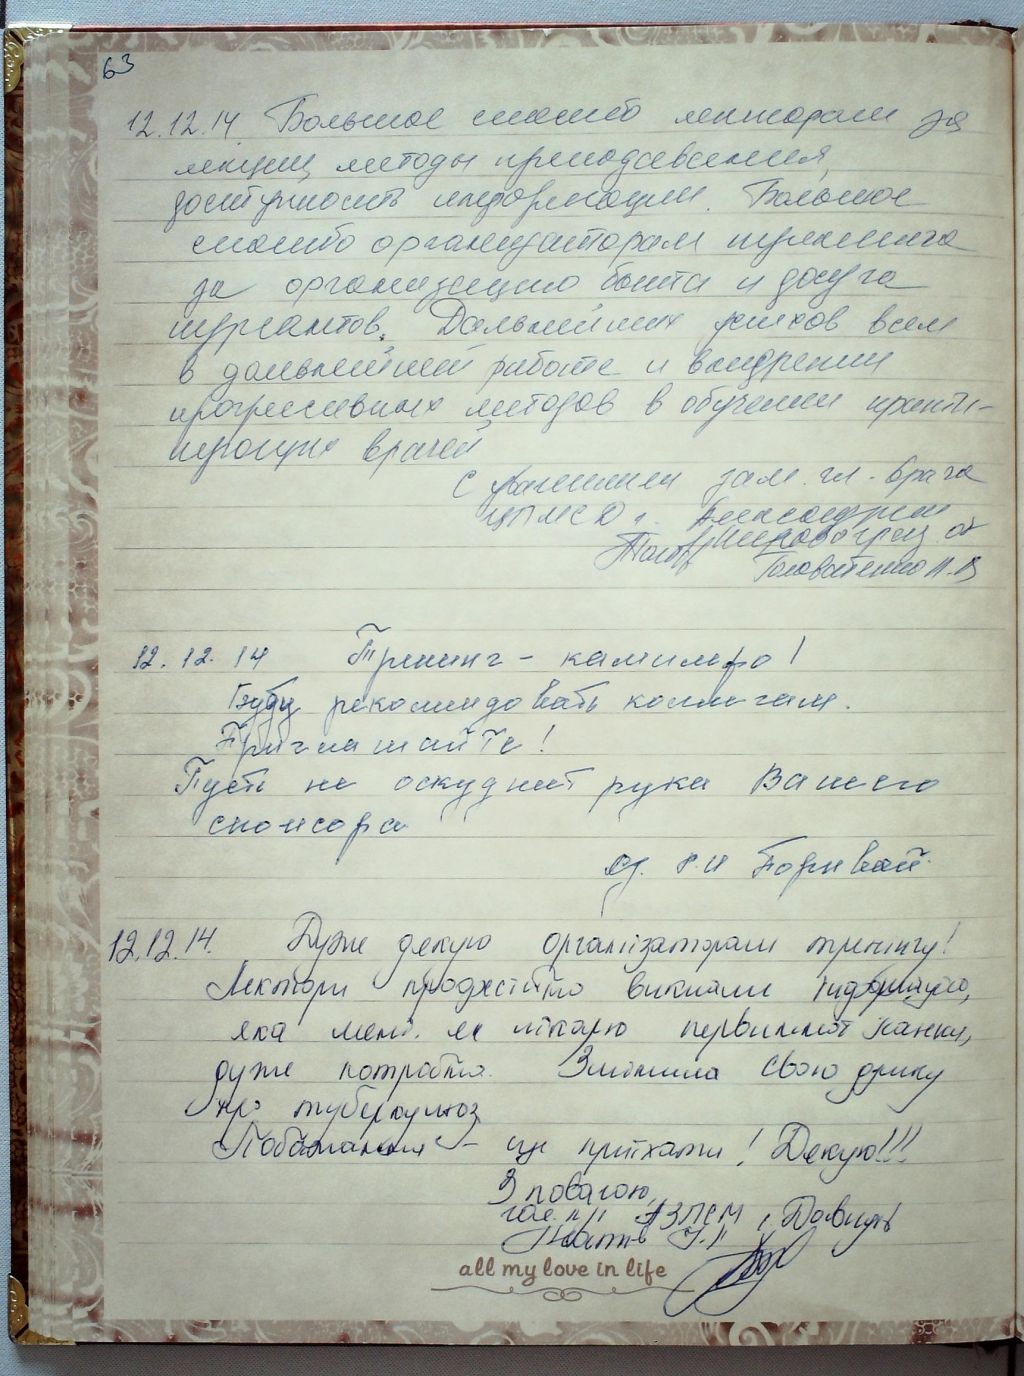 63
12.12.14 Большое спасибо лекторам за
лекции, методы преподавания,
доступность информации. Большое
спасибо организаторам тренинга
за организацию быта и досуга
курсантов. Дальнейших успехов всем
в дальнейшей работе и внедрении
прогрессивных методов в обучении практи-
кующих врачей
С уважением зам. гл. врача
ЦПМСД г. Александрии
Кировоград об
Головатенко
12.12.14 Тренинг - классно!
Буду рекомендовать коллегам.
Приглашайте!
Пусть не оскудеет рука Вашего
спонсора
12.12.14. Дуже дякую організаторам тренінгу!
Лектори професійно виклали інформацію,
яка мені, як лікарю первинної ланки,
дуже потрібна. Змінила свою думку
про туберкульоз
Побажання - ще приїхати! Дякую!!!
З повагою,
АЗПСМ
all my love in life